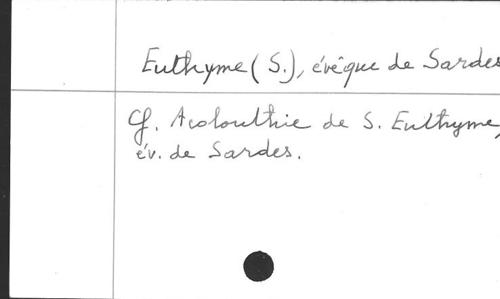 Euthyme (S.), évêque de Sardes
Cf. Acolouthie de S. Euthyme,
év. de Sardes.